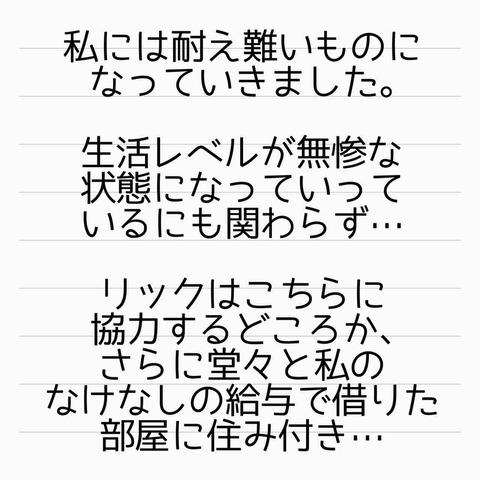 私には耐え難いものに
なっていきました。
生活レベルが無惨な
状態になっていって
いるにも関わらず…
リックはこちらに
協力するどころか、
さらに堂々と私の
なけなしの給与で借りた
部屋に住み付き…